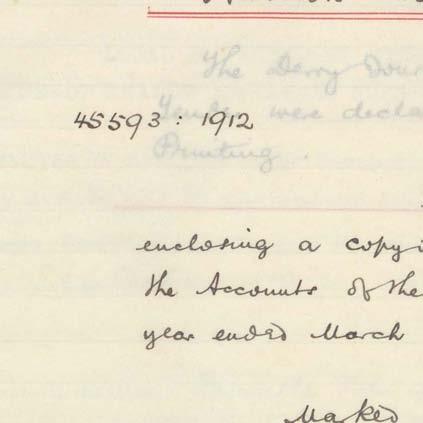 The Derry Jour
were decla
Printing.
45593 : 1912
enclosing a copy
the Accounts of the
year ended March
Marked